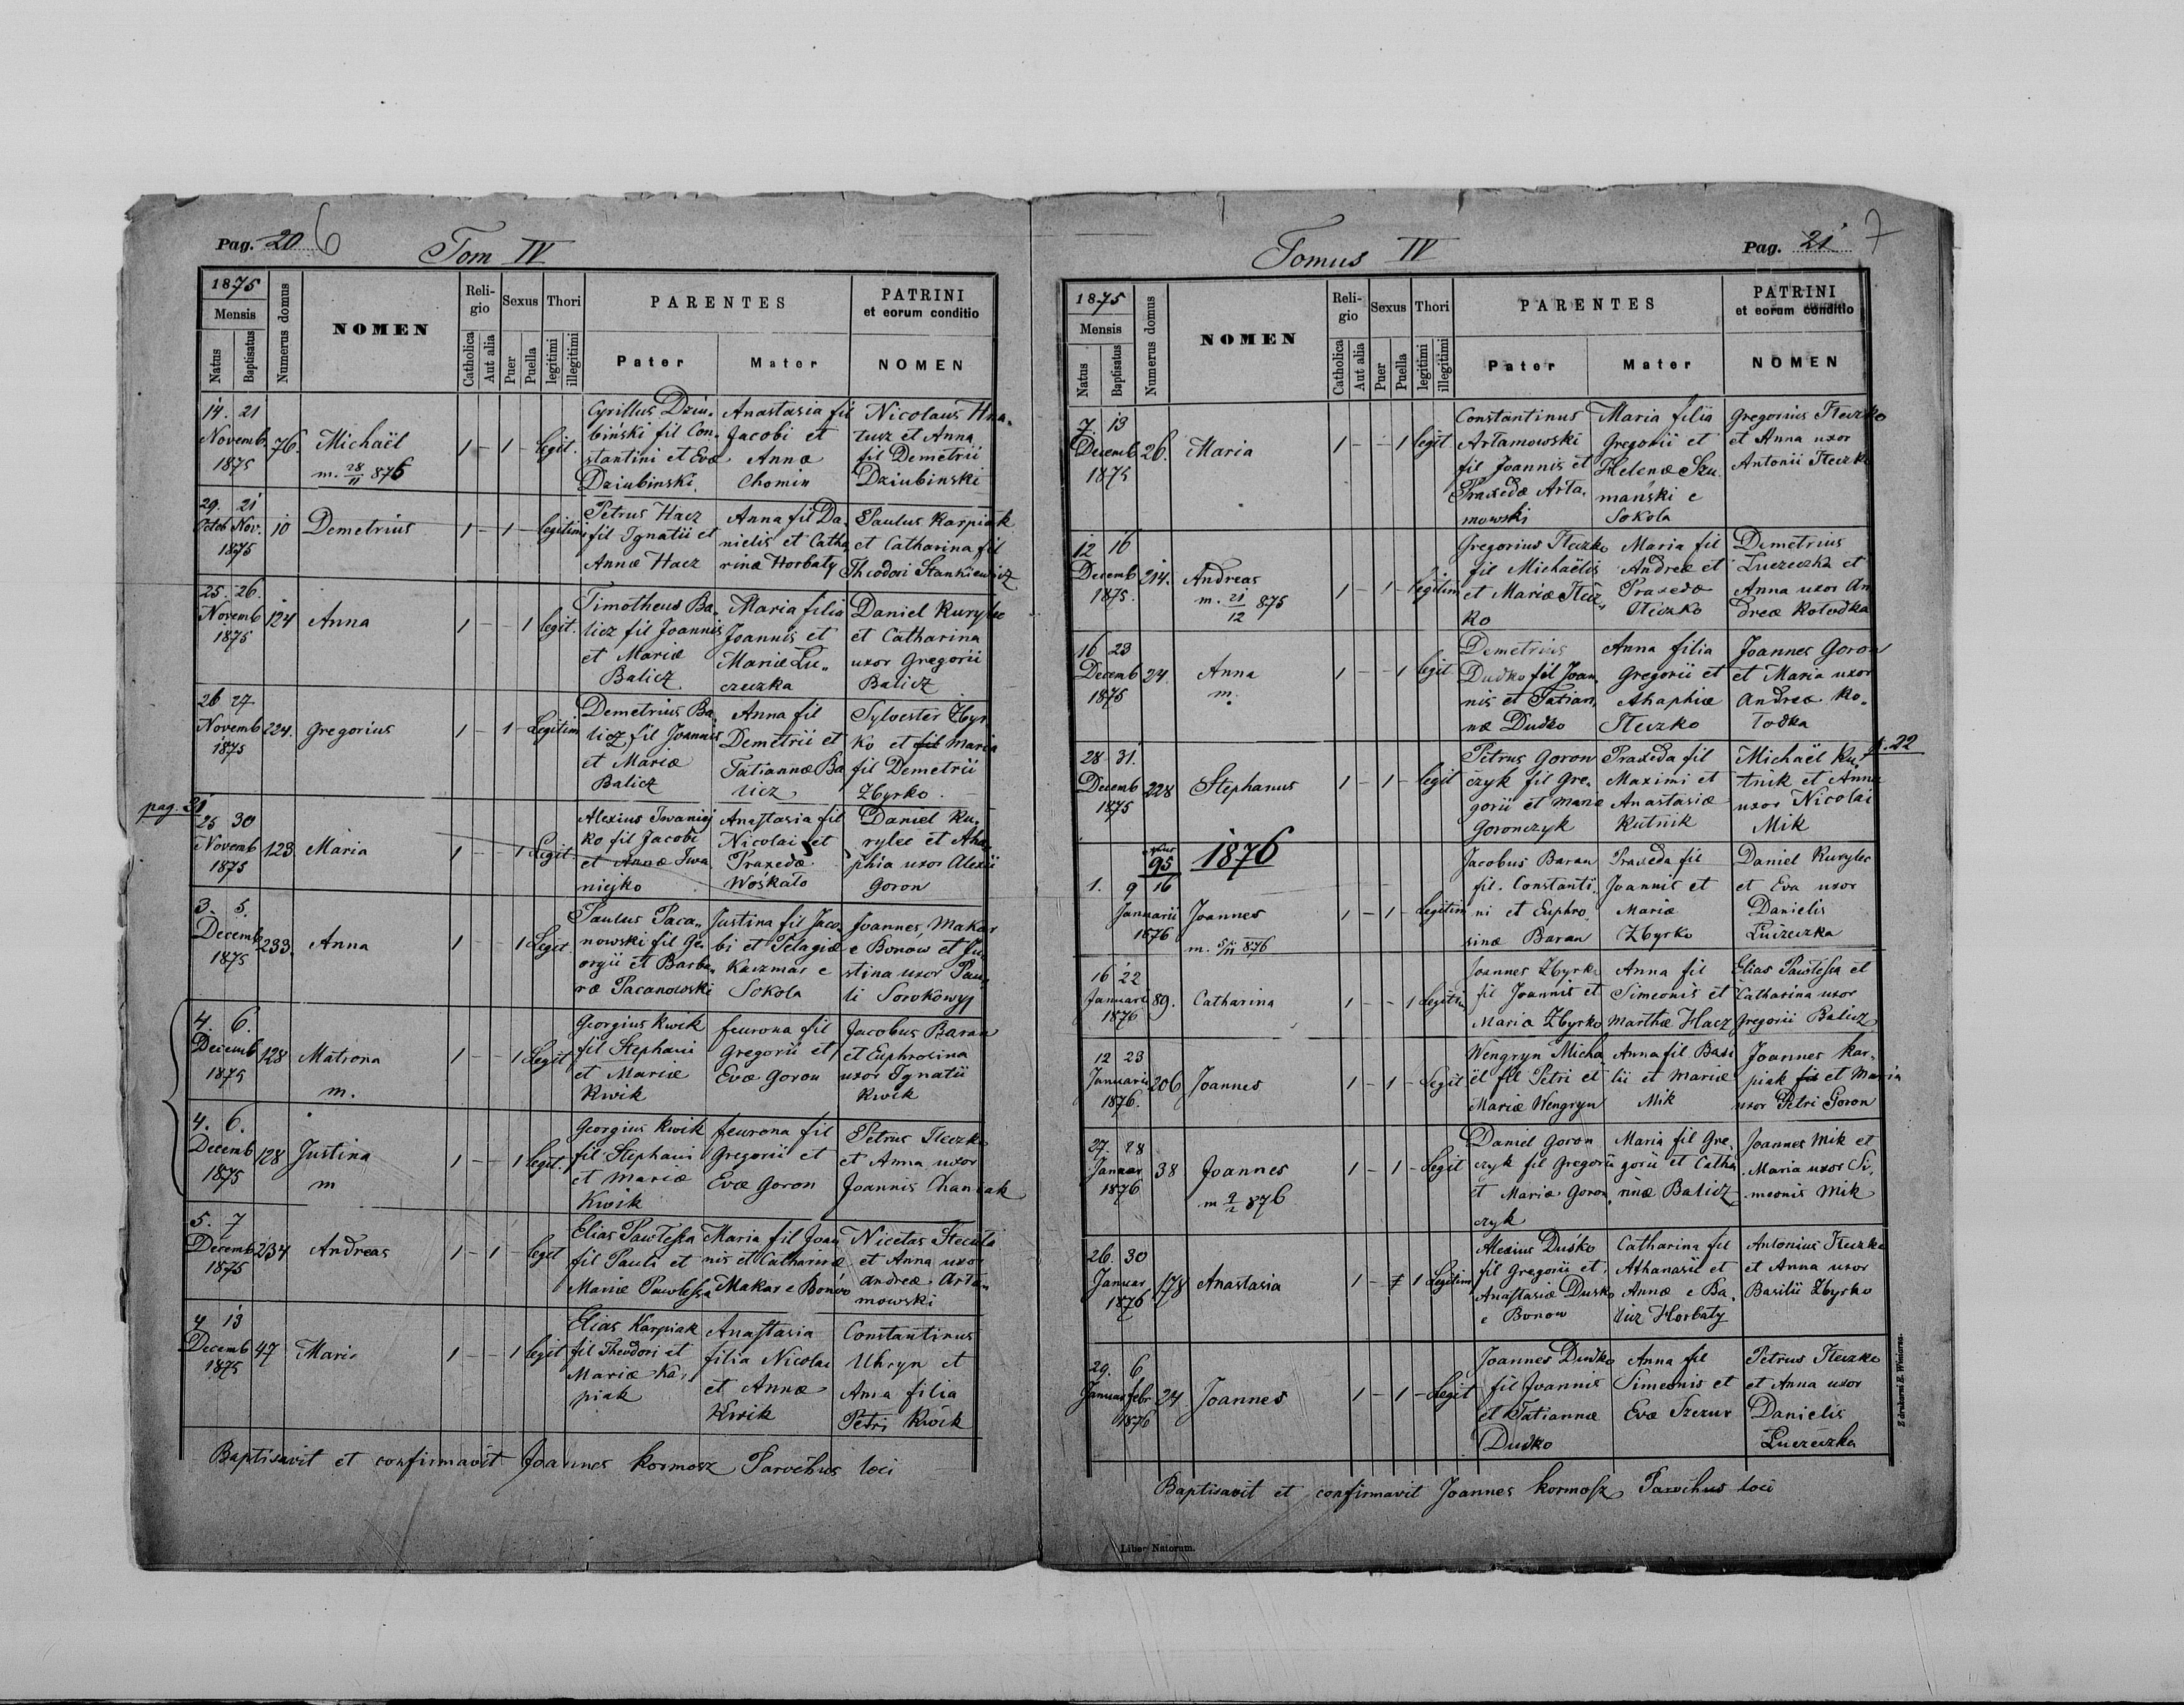 Pag. 20 6
Tom IV
1875
Mensis
Natus
Baptisatus
Numerus domus
NOMEN
Religio
Catholica
Aut alia
Sexus
Puer
Puella
Thori
legitimi
illegitimi
PARENTES
Pater
Mater
PATRINI
et eorum conditio
NOMEN
14. 21
Novemb
1875
76.
Michaël
m. 28/11 876
1 - 1 - legit.
Cyrillus Dziu-
biński fil Con-
stantini et Evæ
Dziubinski.
Anastasia fil
Jacobi et
Annæ
Chomin
Nicolaus Hna-
tusz et Anna
fil Demetrii
Dziubinski
29. 21
Octob Nov.
1875
10
Demetrius
1 - 1 - legitimi
Petrus Hacz
fil Ignatii et
Annæ Hacz
Anna fil Da-
nielis et Catha
rinæ Horbaty
Paulus Karpiak
et Catharina fil
Theodori Stankiewicz
25. 26.
Novemb
1875
124
Anna
1 - - 1 legit.
Timotheus Ba-
licz fil Joannis
et Mariæ
Balicz
Maria filia
Joannis et
Mariæ Lu-
czeczka
Daniel Kurylec
et Catharina
uxor Gregorii
Balicz
26 27
Novemb
1875
224.
Gregorius
1 - 1 - Legitim
Demetrius Ba-
licz fil Joannis
et Mariæ
Balicz
Anna fil
Demetrii et
Tatiannæ Ba
licz
Sylvester Zbyr
ko et fil Maria
fil Demetrii
Zbyrko.
pag. 21
25 30
Novemb
1875
123
Maria
1 - - 1 Legit
Alexius Iwaniej
ko fil Jacobi
et Annæ Iwa
niejko
Anastasia fil
Nicolai et
Praxedæ
Wośkało
Daniel Ku-
rylec et Aha-
phia uxor Alexii
Goron
3. 5.
Decemb
1875
233.
Anna
1 - - 1 Legit
Paulus Paca-
nowski fil Ge-
orgii et Barba-
ræ Pacanowski
Justina fil Jaco-
bi et Pelagiæ
Kaczmar e
Sokola
Joannes Makar
e Bonow et Ju-
stina uxor Pau-
li Sorokowyj
4. 6.
Decemb
1875
128
Matrona
m.
1 - - 1 Legit
Georgius Kwik
fil Stephani
et Mariæ
Kwik
feurona fil
Gregorii et
Evæ Goron
Jacobus Baran
et Euphrosina
uxor Ignatii
Kwik
4. 6.
Decemb
1875
128
Justina
m
1 - - 1 legit.
Georgius Kwik
fil Stephani
et Mariæ
Kwik
feurona fil
Gregorii et
Evæ Goron
Petrus Steczko
et Anna uxor
Joannis Chaniak
5. 7
Decemb
1875
234
Andreas
1 - 1 - legit
Elias Pawlessa
fil Pauli et
Mariæ Pawlessa
Maria fil Joan
nis et Catharinæ
Makar e Bonów
Nicetas Stecula
et Anna uxor
Andreæ Arta-
mowski
7 13
Decemb
1875
47
Maria
1 - - 1 legit
Elias Karpiak
fil Theodori et
Mariæ Ka-
piak
Anastasia
filia Nicolai
et Annæ
Kwik
Constantinus
Uhryn et
Anna filia
Petri Kwik
Baptisavit et confirmavit Joannes Kormosz Parochus loci
Tomus IV
Pag. 21 7
1875
Mensis
Natus
Baptisatus
Numerus domus
NOMEN
Religio
Catholica
Aut alia
Sexus
Puer
Puella
Thori
legitimi
illegitimi
PARENTES
Pater
Mater
PATRINI
et eorum conditio
NOMEN
7. 13
Decemb
1875
26.
Maria
1 - - 1 legit
Constantinus
Artamowski
fil Joannis et
Praxedæ Arta-
mowski
Maria filia
Gregorii et
Helenæ Szu
mański e
Sokola
Gregorius Steczko
et Anna uxor
Antonii Steczko
12 16
Decemb
1875.
214.
Andreas
m. 21/12 875
1 - 1 - legitim
Gregorius Steczko
fil Michaëlis
et Mariæ Stecz-
ko
Maria fil
Andreæ et
Praxedæ
Steczko
Demetrius
Luczeczka et
Anna uxor An
dreæ Kołodka
16 23
Decemb
1875
24.
Anna
m.
1 - - 1 legit
Demetrius
Dudko fil Joan-
nis et Tatian-
næ Dudko
Anna filia
Gregorii et
Ahaphiæ
Steczko
Joannes Goron
et Maria uxor
Andreæ Ko-
łodka
28 31.
Decemb
1875
228
Stephanus
1 - 1 - legit
Petrus Goron
czyk fil Gre-
gorii et Mariæ
Goronczyk
Praxeda fil
Maximi et
Anastasiæ
Kutnik
Michaël Ku-
tnik et Anna
uxor Nicolai
Mik
p. 22
95
1876
1. 9 16
Januarii
1876
Joannes
m. 5/11 876
1 - 1 - Legitim
Jacobus Baran
fil. Constanti-
ni et Euphro-
sinæ Baran
Praxeda fil
Joannis et
Mariæ
Zbyrko
Daniel Kurylec
et Eva uxor
Danielis
Luczeczka
16 22
Januarii
1876
89.
Catharina
1 - - 1 Legitim
Joannes Zbyrko
fil Joannis et
Maria Zbyrko
Anna fil
Simeonis et
Marthæ Hacz
Elias Pawlessa et
Catharina uxor
Gregorii Balicz
12 23
Januarii
1876.
206
Joannes
1 - 1 - Legit
Wengryn Micha
ël fil Petri et
Mariæ Wengryn
Anna fil Basi
lii et Mariæ
Mik
Joannes Kar-
piak fil et Maria
uxor Petri Goron
27. 28
Januar
1876
38
Joannes
m 9/2 876
1 - 1 - Legit
Daniel Goron
czyk fil Gregorii
et Mariæ Goron
czyk
Maria fil Gre-
gorii et Catha
rinæ Balicz
Joannes Mik et
Maria uxor Si-
meonis Mik
26. 30
Januar
1876
178
Anastasia
1 - 1 1 Legitim
Alexius Duśko
fil Gregorii et
Anastasiæ Dusko
e Bonow
Catharina fil
Athanasii et
Annæ e Ba-
licz Horbaty
Antonius Steczko
et Anna uxor
Basilii Zbyrko
29. 6
Januar febr
1876
24.
Joannes
1 - 1 - Legit
Joannes Dudko
fil Joannis
et Tatiannæ
Dudko
Anna fil
Simeonis et
Evæ Szczur
Petrus Steczko
et Anna uxor
Danielis
Luczeczka
Baptisavit et confirmavit Joannes Kormosz Parochus loci
Liber Natorum.
Z drukarni E. Winiarza.